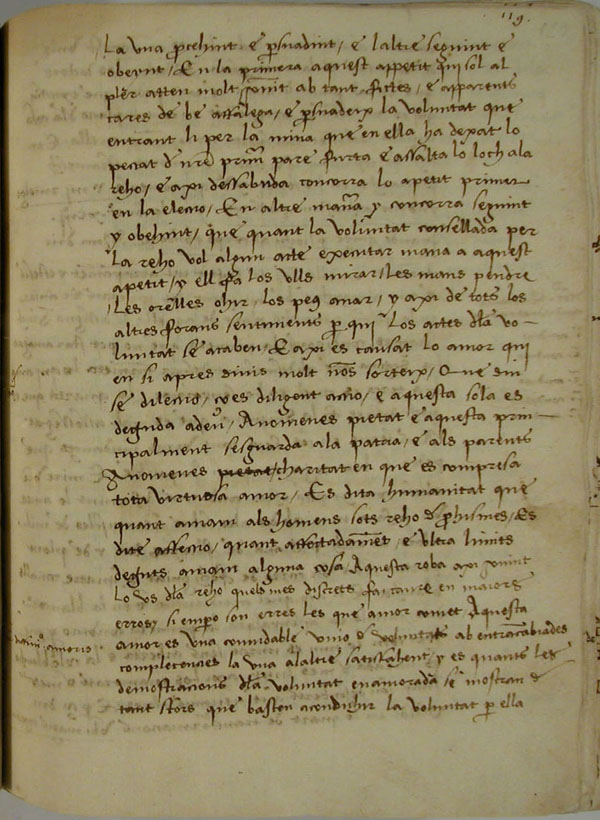 119.
La una p̱cehint e p̱suadint / e laltre seguint e
obeynt / En la primera aquest appetit qui sol al
pler atten molt sovint ab tant factes / e apparents
cares de be assalega / e p̱suadeix la voluntat que
entrant li per la mina que en ella ha dexat lo
peccat d nr̄e prim̄ pare furta e assalta lo loch a la
reho / e axi dessabuda concorra lo apetit primer
en la electio / En altre manr̄a y concorra seguint
y obehint / que quant la voluntat consellada per
la reho vol algun acte executar mana a aquest
apetit / y ell fa los ulls mirar / les mans pendre
les orelles ohir los peus anar / y axi de tots los
altres forans sentiments p̱ qui los actes dla vo-
luntat se acaben / E axi es causat lo amor qui
en si apres divis molt noms sorteix /
se dilectio / ço es diligent actio / e aquesta sola es
deguda a deu / Anomenes pietat e aquesta prin-
cipalment sesguarda a la patria / e als parents
Anomenes pietat / charitat en que es compresa
tota virtuosa amor / Es dita humanitat que
quant amam als homens sots reho d p̱hismes / Es
dite affectio / quant affectadament e ultra limits
deguts amam alguna cosa / Aquesta roba axi vinint
lo us dla reho quels mes discrets fa caure en maiors
errors / si emp̱o son erres les que amor comet Aquesta
amoris
amor es una convidable unio d voluntats ab entracabiades
complecencies la una a laltre satisfahent / y es quants les
demostracions dla voluntat enamorada se mostran d
tant que basten a condighir la voluntat p̱ ella